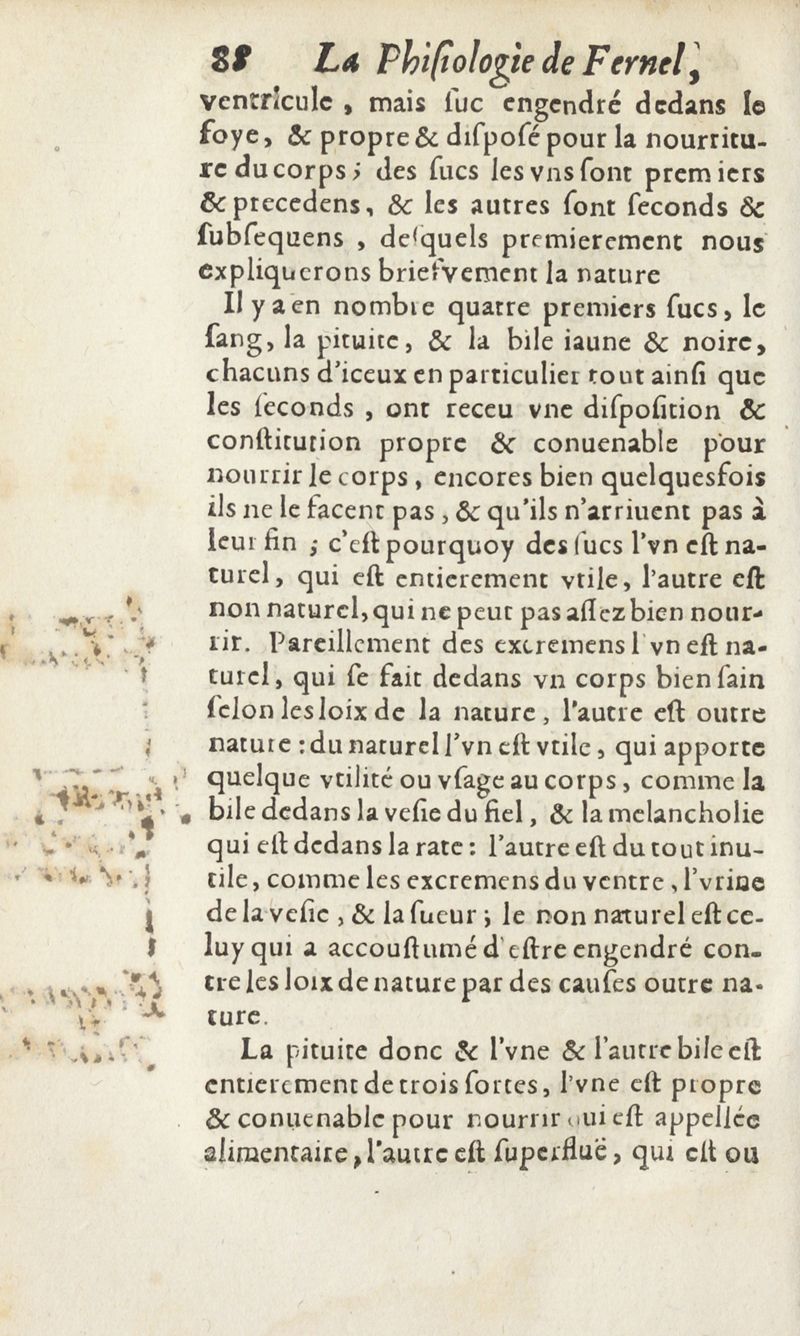 88 La Phiſiologie de Fernel,
ventricule , mais ſuc engendré dedans le
foye, & propre & diſpoſé pour la nourritu-
re du corps ; des ſucs les vns ſont premiers
& precedens, & les autres ſont ſeconds &
ſubſequens , deſquels premierement nous
expliquerons briefvement la nature
Il y a en nombre quatre premiers ſucs, le
ſang, la pituite, & la bile iaune & noire,
chacuns d'iceux en particulier tout ainſi que
les ſeconds , ont receu vne diſpoſition &
conſtitution propre & conuenable pour
nourrir le corps , encores bien quelquesfois
ils ne le facent pas , & qu'ils n'arriuent pas à
leur fin ; c'eſt pourquoy des ſucs l'vn eſt na-
turel, qui eſt entierement vtile, l'autre eſt
non naturel, qui ne peut pas aſſez bien nour-
rir. Pareillement des excremens l'vn eſt na-
turel, qui ſe fait dedans vn corps bien ſain
ſelon les loix de la nature, l'autre eſt outre
nature : du naturel l'vn eſt vtile , qui apporte
quelque vtilité ou vſage au corps , comme la
bile dedans la veſie du fiel, & la melancholie
qui eſt dedans la rate : l'autre eſt du tout inu-
tile, comme les excremens du ventre , l'vrine
de la veſie , & la ſueur ; le non naturel eſt ce-
luy qui a accouſtumé d'eſtre engendré con-
tre les loix de nature par des cauſes outre na-
ture.
La pituite donc & l'vne & l'autre bile eſt
entierement de trois ſortes, l'vne eſt propre
& conuenable pour nourrir qui eſt appellée
alimentaire, l'autre eſt ſuperfluë, qui eſt ou